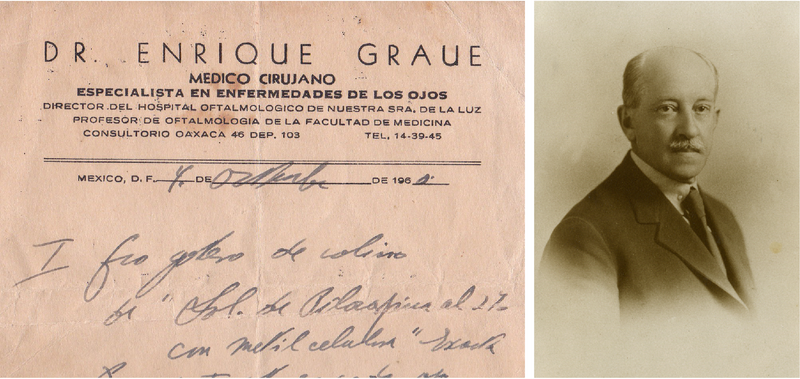 DR. ENRIQUE GRAUE
MEDICO CIRUJANO
ESPECIALISTA EN ENFERMEDADES DE LOS OJOS
DIRECTOR DEL HOSPITAL OFTALMOLOGICO DE NUESTRA SRA. DE LA LUZ
PROFESOR DE OFTALMOLOGIA DE LA FACULTAD DE MEDICINA
CONSULTORIO OAXACA 46 DEP. 103 TEL. 14-39-45
MEXICO, D. F. 4 DE DE 196
I fco gotero de colirio
de "Sol. de Pilocarpina al 2%
con metil celulosa" Exacta